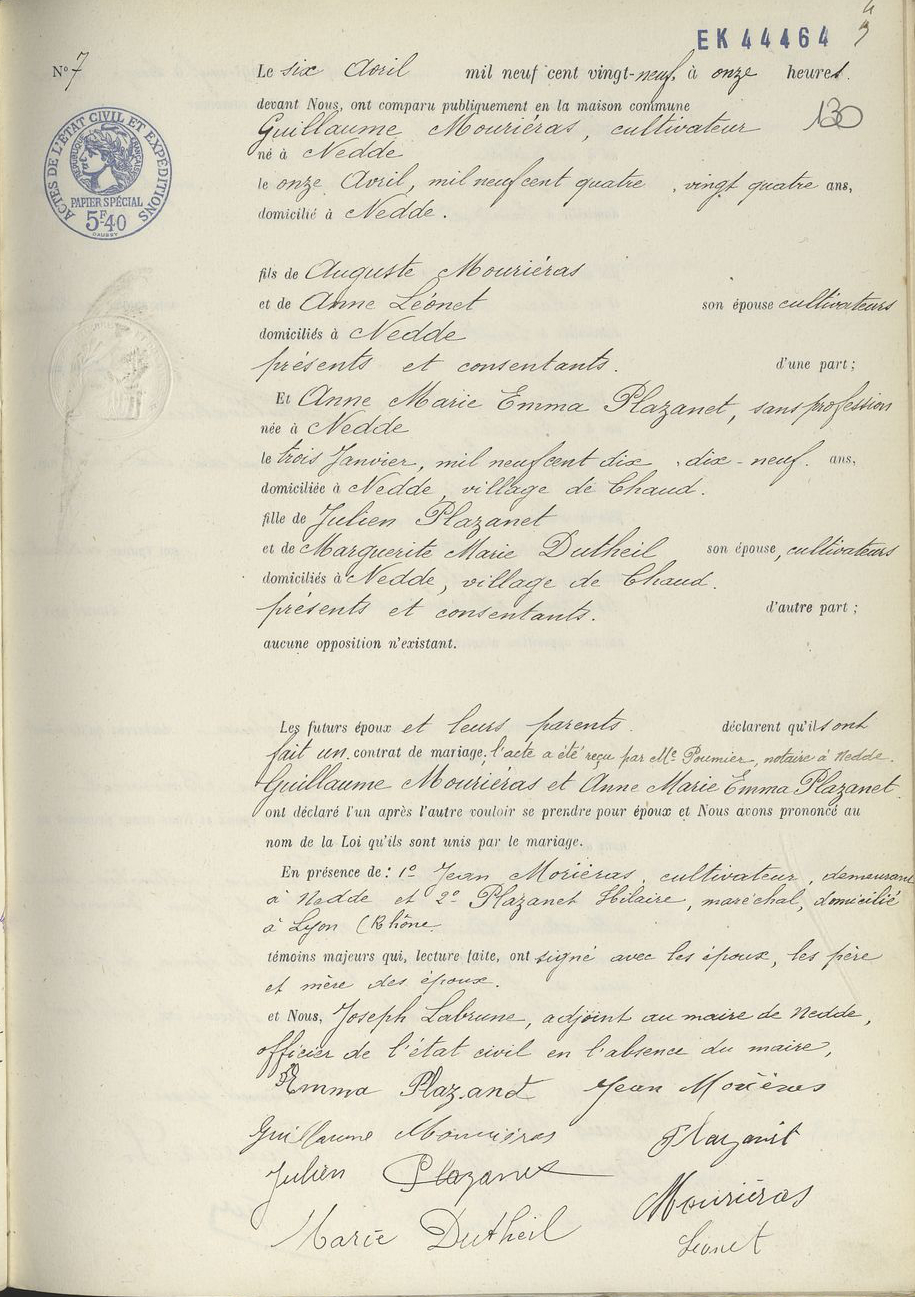 EK 44464
N° 7
Le six Avril mil neuf cent vingt-neuf, à onze heures.
devant Nous, ont comparu publiquement en la maison commune
130
Guillaume Mouriéras, cultivateur
né à Nedde
le onze Avril, mil neuf cent quatre, vingt quatre ans,
domicilié à Nedde.
ACTES DE L'ÉTAT CIVIL ET EXPEDITIONS
RÉPUBLIQUE FRANÇAISE
PAPIER SPÉCIAL
5F40
fils de Auguste Mouriéras
et de Anne Léonet son épouse cultivateurs
domiciliés à Nedde
présents et consentants. d'une part ;
Et Anne Marie Emma Plazanet, sans profession
née à Nedde
le trois Janvier, mil neuf cent dix, dix-neuf. ans,
domiciliée à Nedde, village de Chaud.
fille de Julien Plazanet
et de Marguerite Marie Dutheil son épouse, cultivateurs
domiciliés à Nedde, village de Chaud.
présents et consentants. d'autre part ;
aucune opposition n'existant.
Les futurs époux et leurs parents. déclarent qu'ils ont
fait un contrat de mariage, l'acte a été reçu par Me Poumier, notaire à Nedde.
Guillaume Mouriéras et Anne Marie Emma Plazanet.
ont déclaré l'un après l'autre vouloir se prendre pour époux et Nous avons prononcé au
nom de la Loi qu'ils sont unis par le mariage.
En présence de : 1° Jean Moriéras, cultivateur, demeurant
à Nedde et 2° Plazanet Hilaire, maréchal, domicilié
à Lyon (Rhône
témoins majeurs qui, lecture faite, ont signé avec les époux, les père
et mère des époux.
et Nous, Joseph Labrune, adjoint au maire de Nedde,
officier de l'état civil en l'absence du maire,
Emma Plazanet Jean Moriéras
Guillaume Mouriéras Plazanet
Julien Plazanet
Mouriéras
Marie Dutheil Leonet